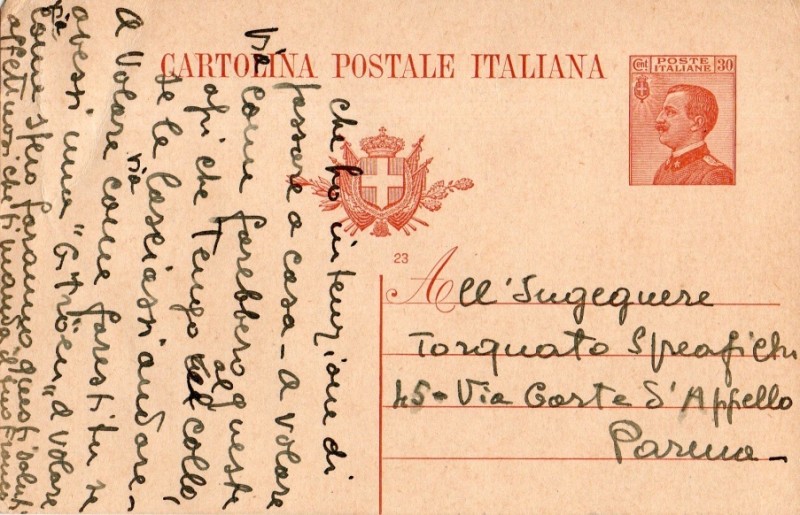 CARTOLINA POSTALE ITALIANA
Cent. POSTE ITALIANE 30
23
All'Ingegnere
Torquato Spreafichi
45 - Via Corte D'Appello
Parma -
che ho intenzione di
passare a casa - a volare
Via come farebbero queste
api che Tengo al collo,
se le lasciassi andare -
A Volare via come faresti tu se
avessi una "Citröen" a volare
già come spero faranno questi saluti
affettuosi che ti manda il tuo